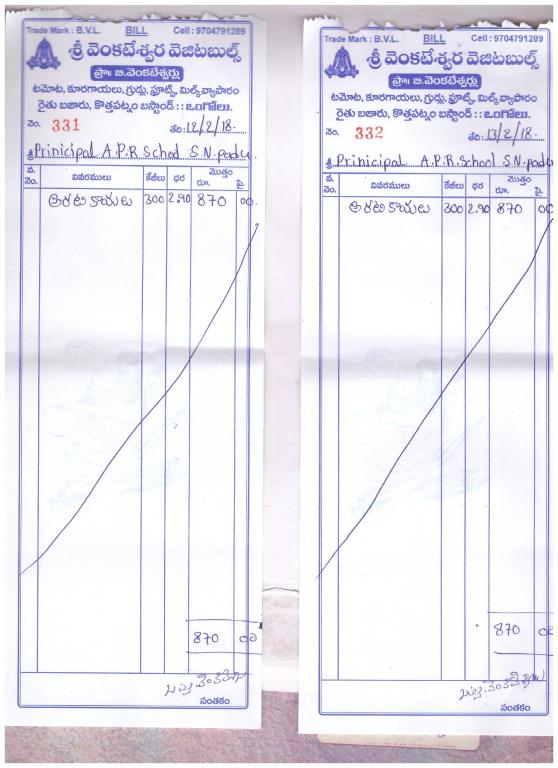 Trade Mark : B.V.L. BILL Cell : 9704791289
శ్రీ వెంకటేశ్వర వెజిటబుల్స్
ప్రొః బి.వెంకటేశ్వర్లు
టమోట, కూరగాయలు, గ్రుడ్లు, ఫ్రూట్స్, మిల్క్ వ్యాపారం
రైతు బజారు, కొత్తపట్నం బస్టాండ్ : : ఒంగోలు.
నెం. 331 తేది 12/2/18.
శ్రీ Prinicipal A.P.R School S.N. padu
వ. నెం. వివరములు కేజీలు ధర మొత్తం రూ. పై.
అరటి కాయలు 300 2.90 870 00
870 00
సంతకం
Trade Mark : B.V.L. BILL Cell : 9704791289
శ్రీ వెంకటేశ్వర వెజిటబుల్స్
ప్రొః బి.వెంకటేశ్వర్లు
టమోట, కూరగాయలు, గ్రుడ్లు, ఫ్రూట్స్, మిల్క్ వ్యాపారం
రైతు బజారు, కొత్తపట్నం బస్టాండ్ : : ఒంగోలు.
నెం. 332 తేది 13/2/18.
శ్రీ Prinicipal A.P.R. School S.N. padu
వ. నెం. వివరములు కేజీలు ధర మొత్తం రూ. పై.
అరటి కాయలు 300 2.90 870 00
870 00
సంతకం